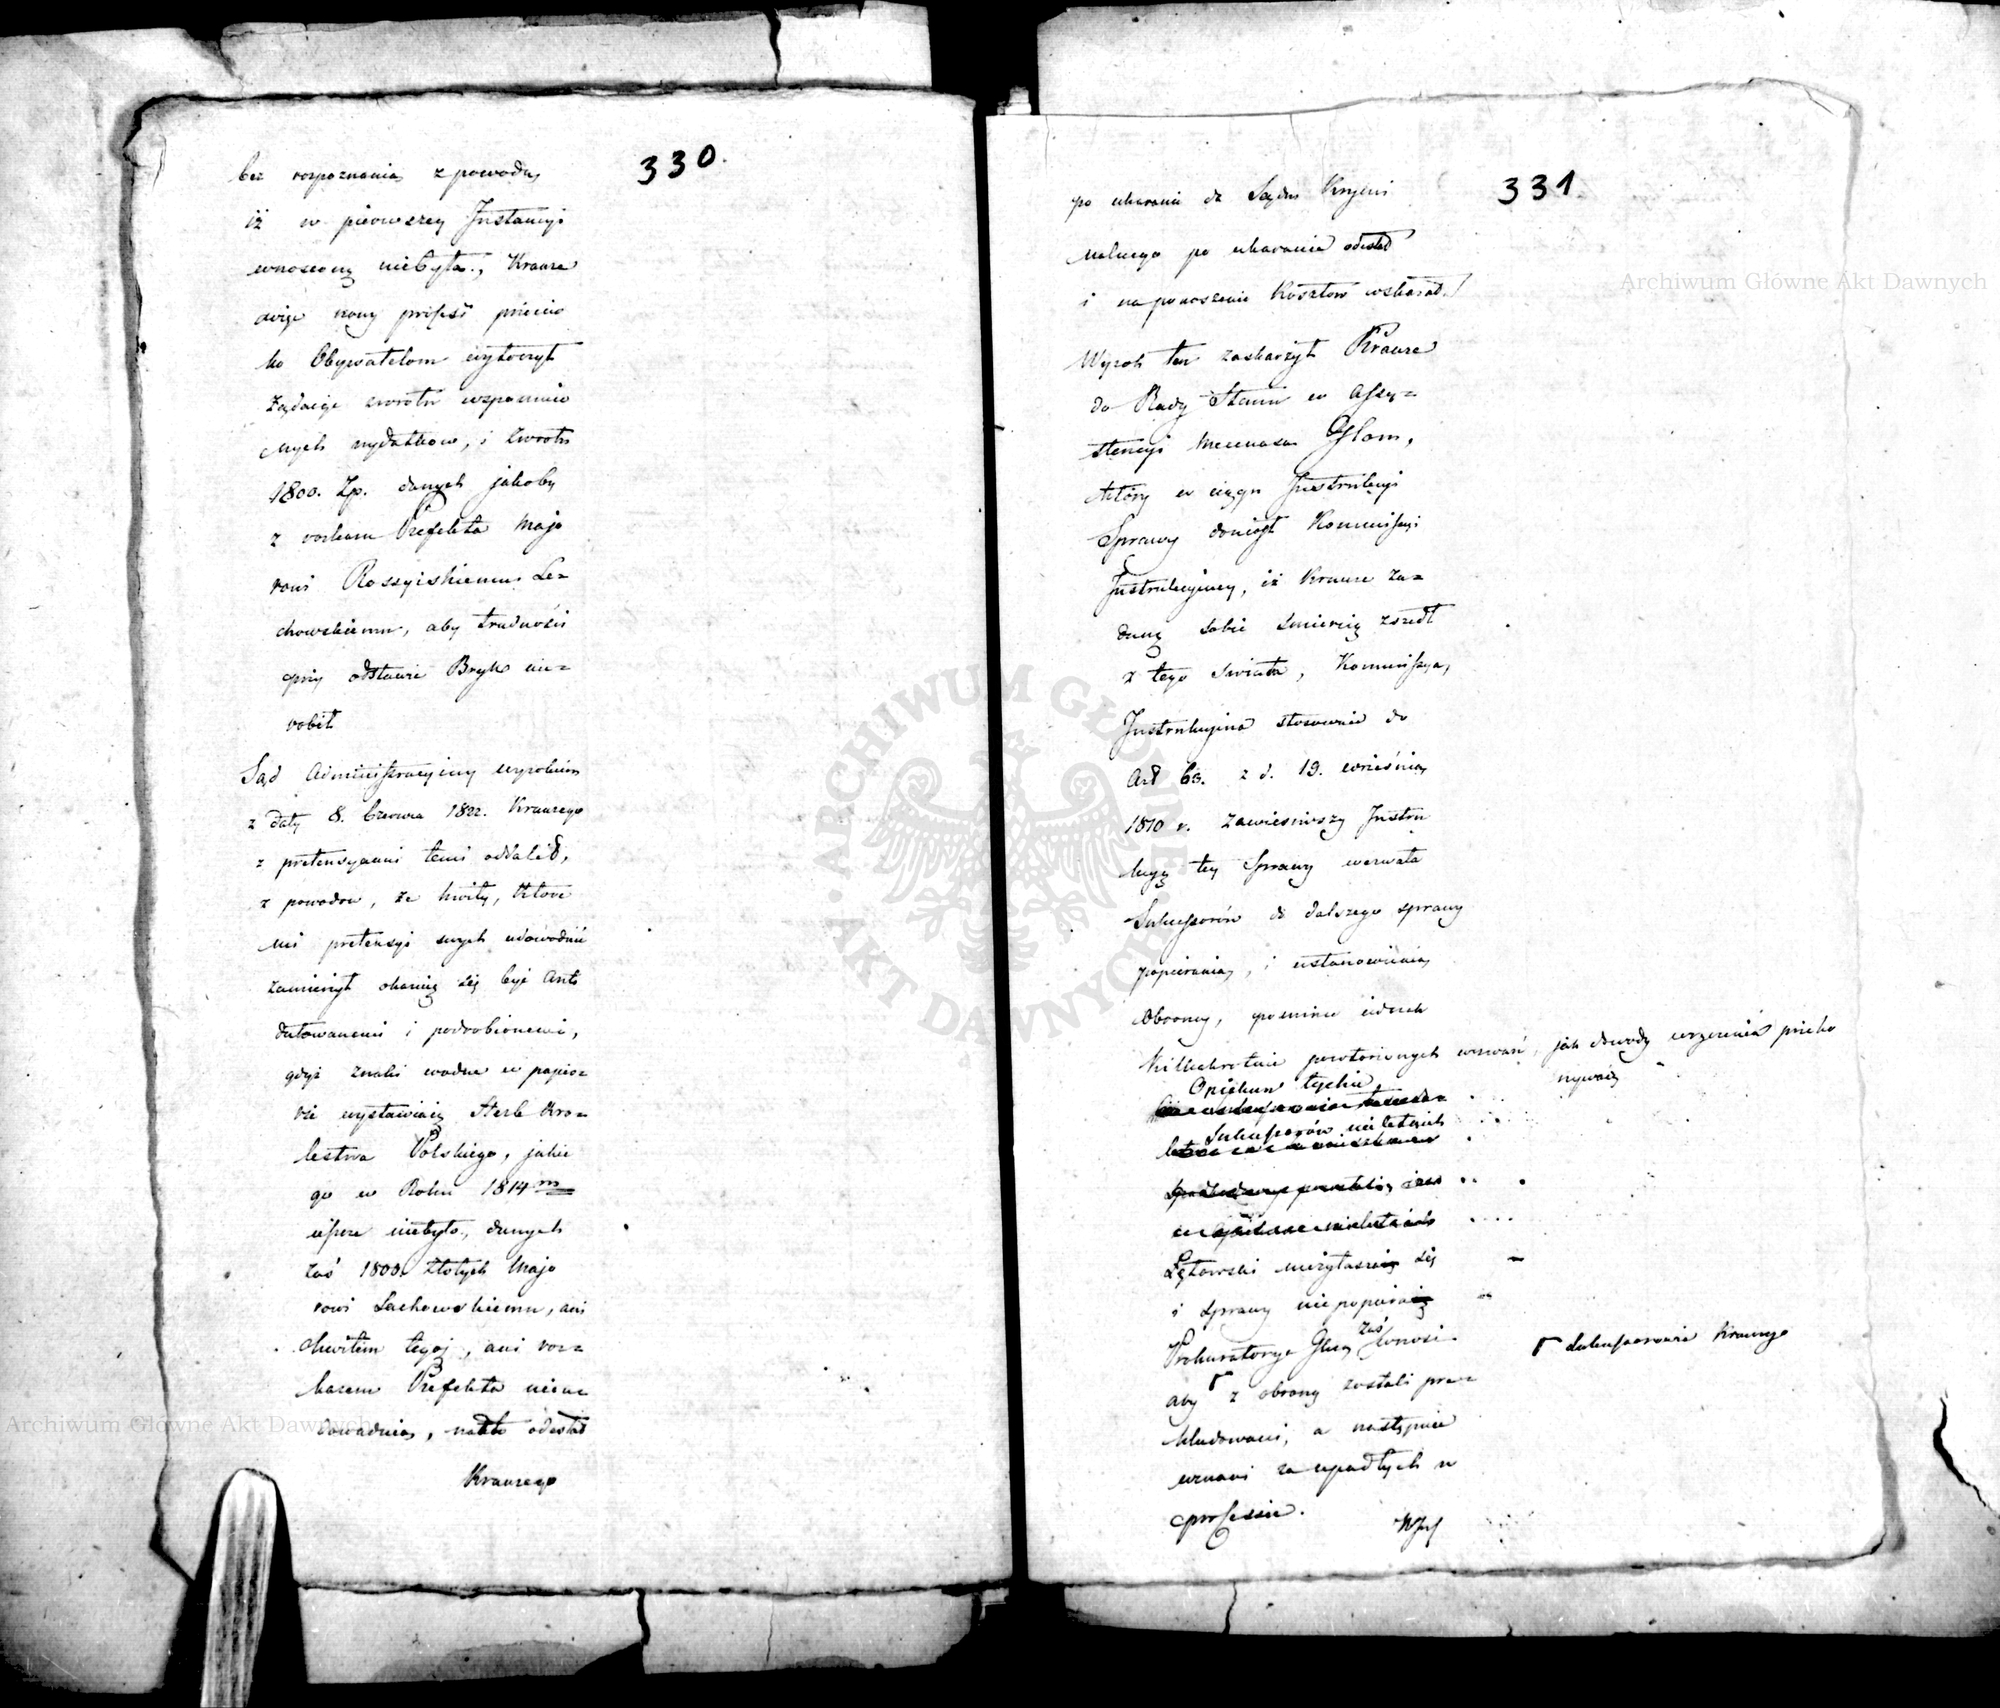 330.
bez rozpoznania z powodu,
iż w pierwszey Instancyi
wnoszoną niebyła, Krauze
więc nowy process przeciw
ko Obywatelom wytoczył
żądaiąc zwrotu wspomnio
nych wydatkow, i zwrotu
1800. Zp. danych jakoby
z roskazu Prefekta Majo
rowi Rossyiskiemu Le=
chowskiemu, aby trudności
przy odstawie Bryk nie=
robił
Sąd Administracyiny wyrokiem
z daty 8. Czerwca 1822. Krauzego
z pretensyami temi oddalił,
z powodow, że kwity, ktore
mi pretensyi swych udowodnić
zamierzył okazuią się być Anti
datowanemi i podrobionemi,
gdyż znaki wodne w papie=
rze wystawiaią Herb Kró=
lestwa Polskiego, jakie
go w Roku 1814m
ieszcze niebyło, danych
zaś 1800. złotych Majo
rowi Lachowskiemu, ani
kwitem tegoż, ani roz=
kazem Prefekta nieu=
dowadnia, nadto odesłał
Krauzego
331.
po ukaranie do Sądu Krymi
nalnego po ukaranie odesłał
i na ponoszenie kosztów wskazał.
Wyrok ten zaskarżył Krauze
do Rady Stanu w Assy=
stencyi Mecenasa
który w ciągu Instrukcyi
Sprawy doniosł Kommissyi
Instrukcyiney, iż Krauze za=
daną sobie śmiercią zszedł
z tego świata, Kommissya,
Instrukcyina stosownie do
Art 63. z d. 19. września
1810 r. zawiesiwszy Instru
kcyą tey Sprawy wezwała
Sukcessorów do dalszego sprawy
popierania, i ustanowienia
Obrony, pomimo iednak
kilkakrotnie powtórzonych wezwań, jak dowody wręczenia przeko
nywaią
Opiekun tychże
Sukcessorów nieletnich
Łętowski niezgłaszaią się
i sprawy niepopieraią
Prokuratorya Glna zaś wnosi
aby Γ z obrony zostali pre=
kludowani, a następnie
uznani za upadłych w
processie.
Γ Sukcessorowie Krauzego